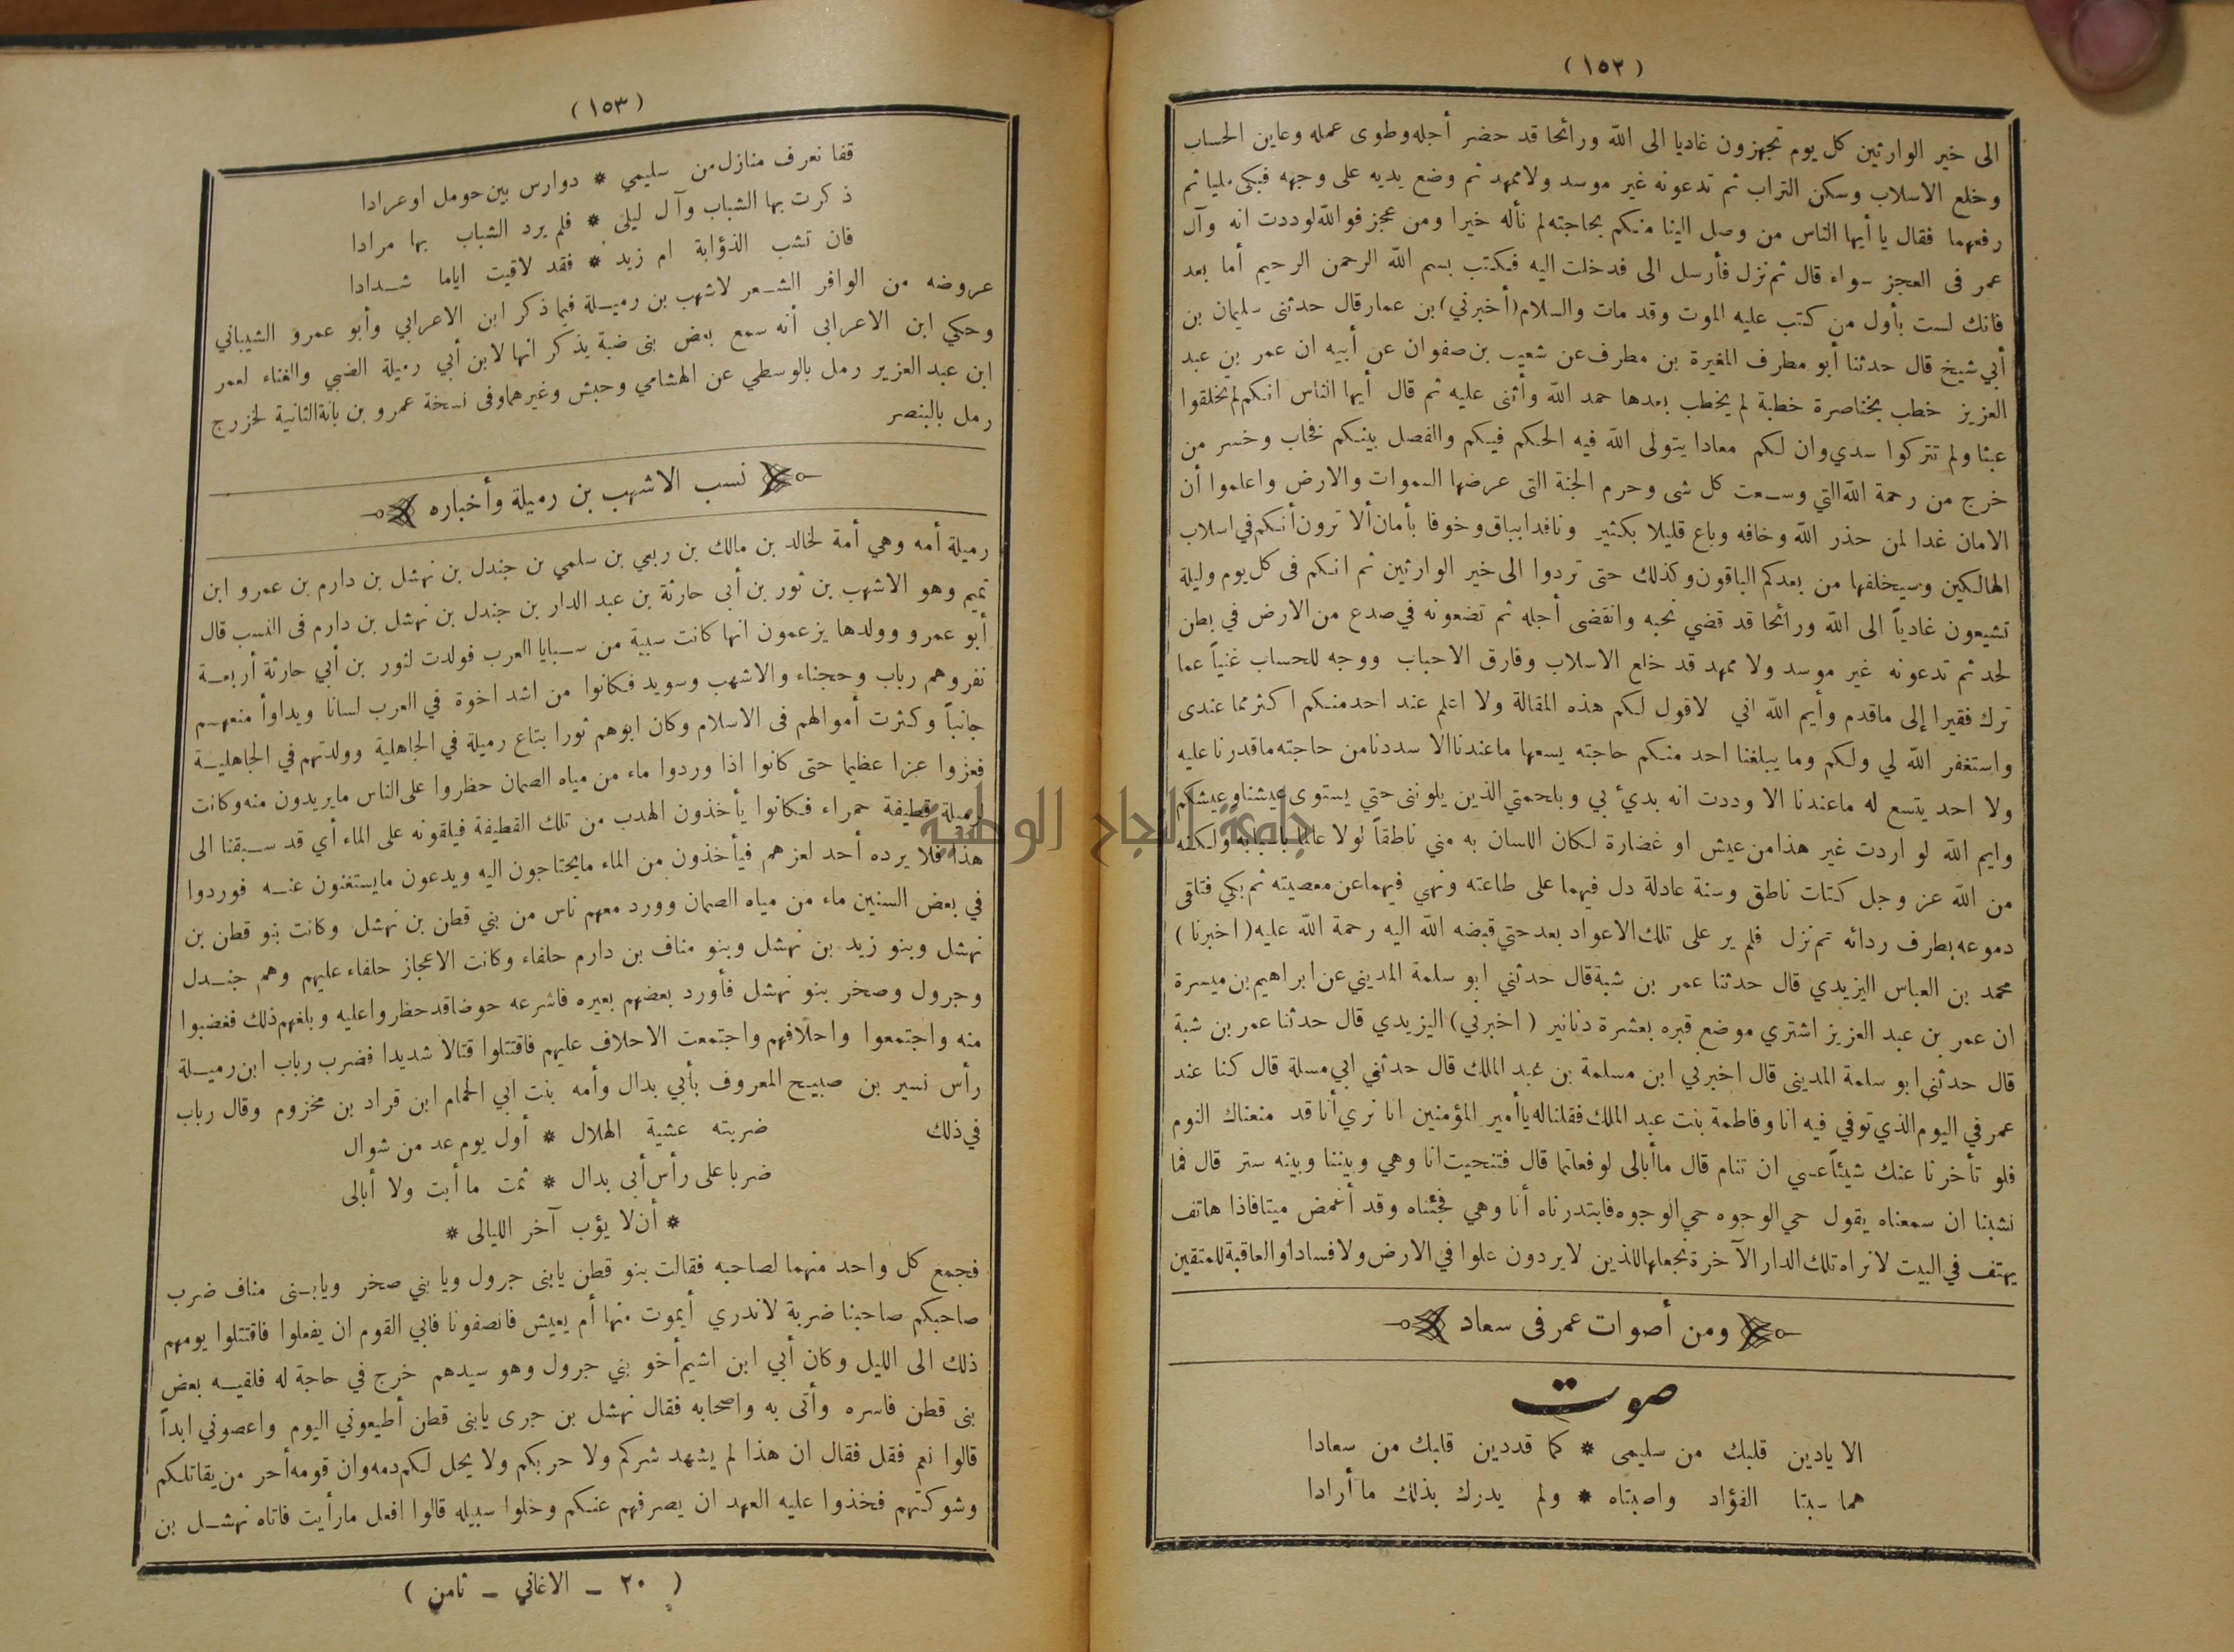 (١٥٢)
الى خير الوارثين كل يوم تجهزون غاديا الى الله ورائحا قد حضر أجله وطوى عمله وعاين الحساب
وخلع الاسلاب وسكن التراب ثم تدعونه غير موسد ولا ممهد ثم وضع يديه على وجهه فبكى مليا ثم
رفعهما فقال يا أيها الناس من وصل الينا منكم بحاجته لم نأله خيرا ومن عجز فوالله لوددت انه وآل
عمر فى العجز سواء قال ثم نزل فأرسل الى فدخلت اليه فكتب بسم الله الرحمن الرحيم أما بعد
فانك لست بأول من كتب عليه الموت وقد مات والسلام (أخبرني) بن عمار قال حدثنى سليمان بن
أبي شيخ قال حدثنا أبو مطرف المغيرة بن مطرف عن شعيب بن صفوان عن أبيه ان عمر بن عبد
العزيز خطب بخناصرة خطبة لم يخطب بعدها حمد الله وأثنى عليه ثم قال أيها الناس انكم لم تخلقوا
عبثا ولم تتركوا سدي وان لكم معادا يتولى الله فيه الحكم فيكم والفصل بينكم فخاب وخسر من
خرج من رحمة الله التي وسعت كل شى وحرم الجنة التى عرضها السموات والارض واعلموا أن
الامان غدا لمن حذر الله وخافه وباع قليلا بكثير ونافدا بباق وخوفا بأمان ألا ترون أنكم في اسلاب
الهالكين وسيخلفها من بعدكم الباقون وكذلك حتى تردوا الى خير الوارثين ثم انكم فى كل يوم وليلة
تشيعون غادياً الى الله ورائحا قد قضي نحبه وانقضى أجله ثم تضعونه في صدع من الارض في بطن
لحد ثم تدعونه غير موسد ولا ممهد قد خلع الاسلاب وفارق الاحباب ووجه للحساب غنياً عما
ترك فقيرا إلى ماقدم وأيم الله اني لاقول لكم هذه المقالة ولا اعلم عند احد منكم اكثر مما عندى
واستغفر الله لي ولكم وما يبلغنا احد منكم حاجته يسعها ماعندنا الا سددنا من حاجته ماقدرنا عليه
ولا احد يتسع له ماعندنا الا وددت انه بدئ بي وبلحمتي الذين يلوننى حتي يستوى عيشنا وعيشكم
وايم الله لو اردت غير هذا من عيش او غضارة لكان اللسان به مني ناطقاً لولا عالما باسبابه ولكنه
من الله عز وجل كتات ناطق وسنة عادلة دل فيهما على طاعته ونهي فيهما عن معصيته ثم بكي فتلقى
دموعه بطرف ردائه ثم نزل فلم ير على تلك الاعواد بعد حتي قبضه الله اليه رحمة الله عليه (اخبرنا)
محمد بن العباس اليزيدي قال حدثنا عمر بن شبة قال حدثني ابو سلمة المديني عن ابراهيم بن ميسرة
ان عمر بن عبد العزيز اشتري موضع قبره بعشرة دنانير (اخبرني) اليزيدي قال حدثنا عمر بن شبة
قال حدثني ابو سلمة المدينى قال اخبرني ابن مسلمة بن عبد الملك قال حدثني ابي مسلة قال كنا عند
عمر في اليوم الذي توفي فيه انا وفاطمة بنت عبد الملك فقلنا له يا أمير المؤمنين انا نري أنا قد منعناك النوم
فلو تأخرنا عنك شيئاً عسي ان تنام قال ما أبالى لو فعلتما قال فتنحيت انا وهي وبيننا وبينه ستر قال فما
نشبنا ان سمعناه يقول حي الوجوه حي الوجوه فابتدرناه أنا وهي فجئناه وقد أغمض ميتا فاذا هاتف
يهتف في البيت لا نراه تلك الدار الآخرة نجعلها للذين لا يردون علوا في الارض ولا فسادا والعاقبة للمتقين
ومن أصوات عمر فى سعاد
صوت
الا يادين قلبك من سليمى * كما قددين قابك من سعادا
هما سبتا الفؤاد واصبتاه * ولم يدرك بذلك ما أرادا
(١٥٣)
قفا نعرف منازل من سليمي * دوارس بين حومل او عرادا
ذكرت بها الشباب وآل ليلى * فلم يرد الشباب بها مرادا
فان تشب الذؤابة ام زيد * فقد لاقيت اياما شدادا
عروضه من الوافر الشعر لاشهب بن رميلة فيما ذكر ابن الاعرابي وأبو عمرو الشيباني
وحكي ابن الاعرابى أنه سمع بعض بنى ضبة يذكر انها لابن أبي رميلة الضبي والغناء لعمر
ابن عبد العزير رمل بالوسطي عن الهشامي وحبش وغيرهما وفى نسخة عمرو بن بانة الثانية لخزرج
رمل بالبنصر
نسب الاشهب بن رميلة وأخباره
رميلة أمه وهي أمة لخالد بن مالك بن ربعي بن سلمي بن جندل بن نهشل بن دارم بن عمرو ابن
تميم وهو الاشهب بن ثور بن أبى حارثة بن عبد الدار بن جندل بن نهشل بن دارم فى النسب قال
أبو عمرو وولدها يزعمون انها كانت سبية من سبايا العرب فولدت لثور بن أبي حارثة أربعة
نفروهم رباب وحجناء والاشهب وسويد فكانوا من اشد اخوة في العرب لسانا ويداوأ منعهم
جانباً وكثرت أموالهم فى الاسلام وكان ابوهم ثورا بتاع رميلة في الجاهلية وولدتهم في الجاهلية
فعزوا عزا عظيما حتى كانوا اذا وردوا ماء من مياه الصمان حظروا على الناس مايريدون منه وكانت
لرميلة قطيفة حمراء فكانوا يأخذون الهدب من تلك القطيفة فيلقونه على الماء أي قد سبقنا الى
هذا فلا يرده أحد لعزهم فيأخذون من الماء مايحتاجون اليه ويدعون مايستغنون عنه فوردوا
في بعض السنين ماء من مياه الصمان وورد معهم ناس من بني قطن بن نهشل وكانت بنو قطن بن
نهشل وبنو زيد بن نهشل وبنو مناف بن دارم حلفاء وكانت الاعجاز حلفاء عليهم وهم جندل
وجرول وصخر بنو نهشل فأورد بعضهم بعيره فاشرعه حوضا قد حظروا عليه وبلغهم ذلك فغضبوا
منه واجتمعوا واحلافهم واجتمعت الاحلاف عليهم فاقتتلوا قتالا شديدا فضرب رباب ابن رميلة
رأس نسير بن صبيح المعروف بأبي بدال وأمه بنت ابي الحمام ابن قراد بن مخزوم وقال رباب
في ذلك
ضربته عشية الهلال * أول يوم عد من شوال
ضربا على رأس أبى بدال * ثمت ما أبت ولا أبالى
* أن لا يؤب آخر الليالى *
فجمع كل واحد منهما لصاحبه فقالت بنو قطن يابنى جرول ويا بني صخر ويابنى مناف ضرب
صاحبكم صاحبنا ضربة لاندري أيموت منها أم يعيش فانصفونا فابي القوم ان يفعلوا فاقتتلوا يومهم
ذلك الى الليل وكان أبي ابن اشيم أخو بني جرول وهو سيدهم خرج في حاجة له فلقيه بعض
بنى قطن فاسره وأتى به واصحابه فقال نهشل بن جرى يابنى قطن أطيعوني اليوم واعصوني ابداً
قالوا نعم فقل فقال ان هذا لم يشهد شركم ولا حربكم ولا يحل لكم دمه وان قومه أحر من يقاتلكم
وشوكتهم فخذوا عليه العهد ان يصرفهم عنكم وخلوا سبيله قالوا افعل مارأيت فاتاه نهشل بن
( ٢٠ — الاغاني — ثامن )
جامعة النجاح الوطنية